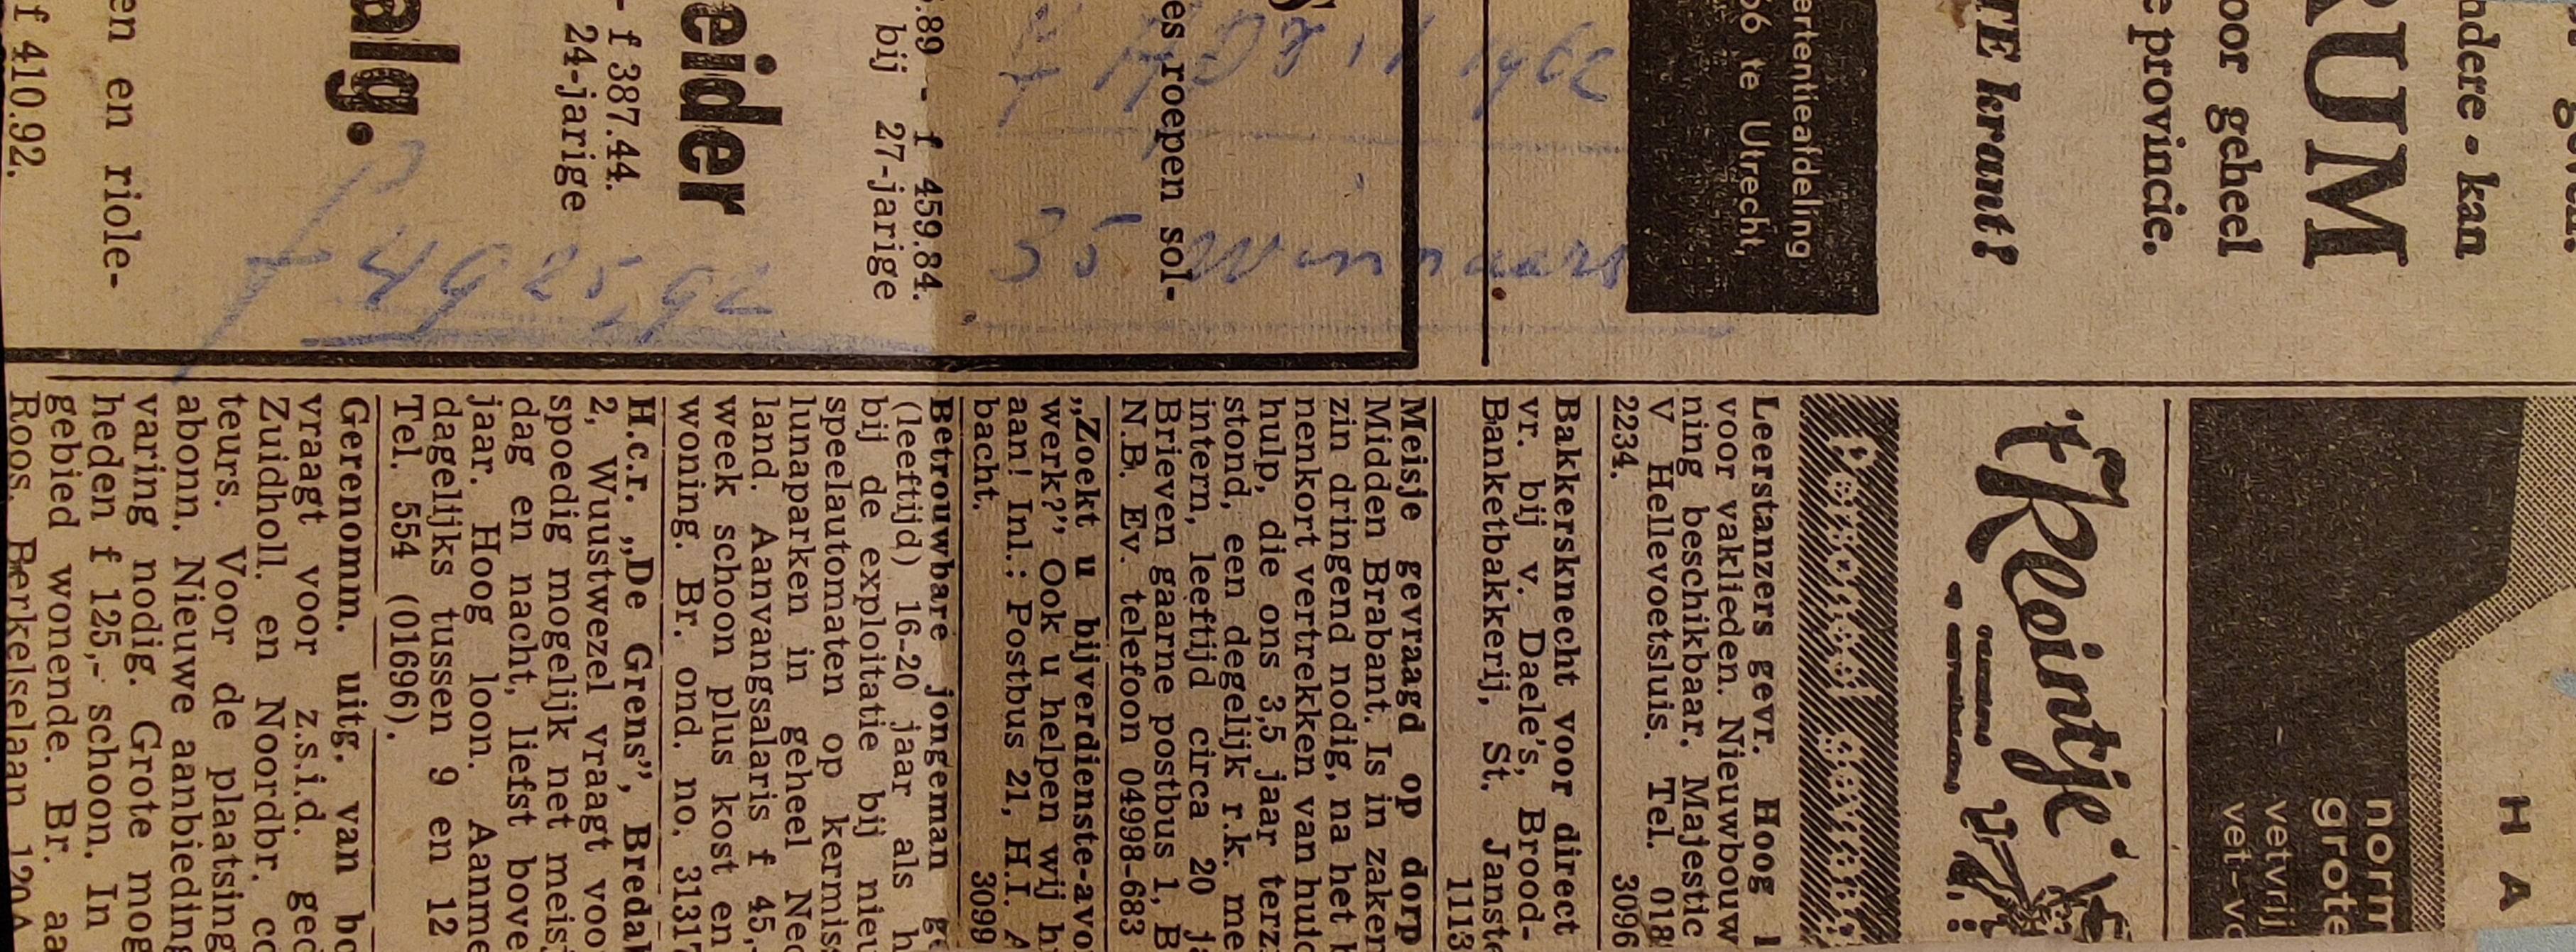 ndere - kan
RUM
oor geheel
e provincie.
TE krant?
ertentieafdeling
66 te Utrecht,
7 April 1962
35 Winnaars
es roepen sol-
.89 - f 459.84.
bij 27-jarige
eider
- f 387.44.
24-jarige
f 4925,92
alg.
en en riole-
f 410.92.
H A
norm
grote
vetvrij
vet-v
't Kleintje
Leerstanzers gevr. Hoog l
voor vaklieden. Nieuwbouw
ning beschikbaar. Majestic
V Hellevoetsluis. Tel. 018
2234. 3096
Bakkersknecht voor direct
vr. bij v. Daele's, Brood-
Banketbakkerij, St. Janste
1113
Meisje gevraagd op dorp
Midden Brabant. Is in zaken
zin dringend nodig, na het h
nenkort vertrekken van huid
hulp, die ons 3,5 jaar terz
stond, een degelijk r.k. me
intern, leeftijd circa 20 ja
Brieven gaarne postbus 1, B
N.B. Ev. telefoon 04998-683
„Zoekt u bijverdienste-avo
werk?” Ook u helpen wij h
aan! Inl.: Postbus 21, H.I. A
bacht. 3099
Betrouwbare jongeman ge
(leeftijd) 16-20 jaar als h
bij de exploitatie bij nieu
speelautomaten op kermis
lunaparken in geheel Ned
land. Aanvangsalaris f 45,-
week schoon plus kost en
woning. Br. ond. no. 3131
H.c.r. „De Grens”, Bredab
2, Wuustwezel vraagt voo
spoedig mogelijk net meis
dag en nacht, liefst bove
jaar. Hoog loon. Aanme
dagelijks tussen 9 en 12
Tel. 554 (01696).
Gerenomm. uitg. van bo
vraagt voor z.s.i.d. ged
Zuidholl. en Noordbr. co
teurs. Voor de plaatsing
abonn. Nieuwe aanbieding
varing nodig. Grote mog
heden f 125,- schoon. In
gebied wonende. Br. aa
Roos, Berkelselaan 120A